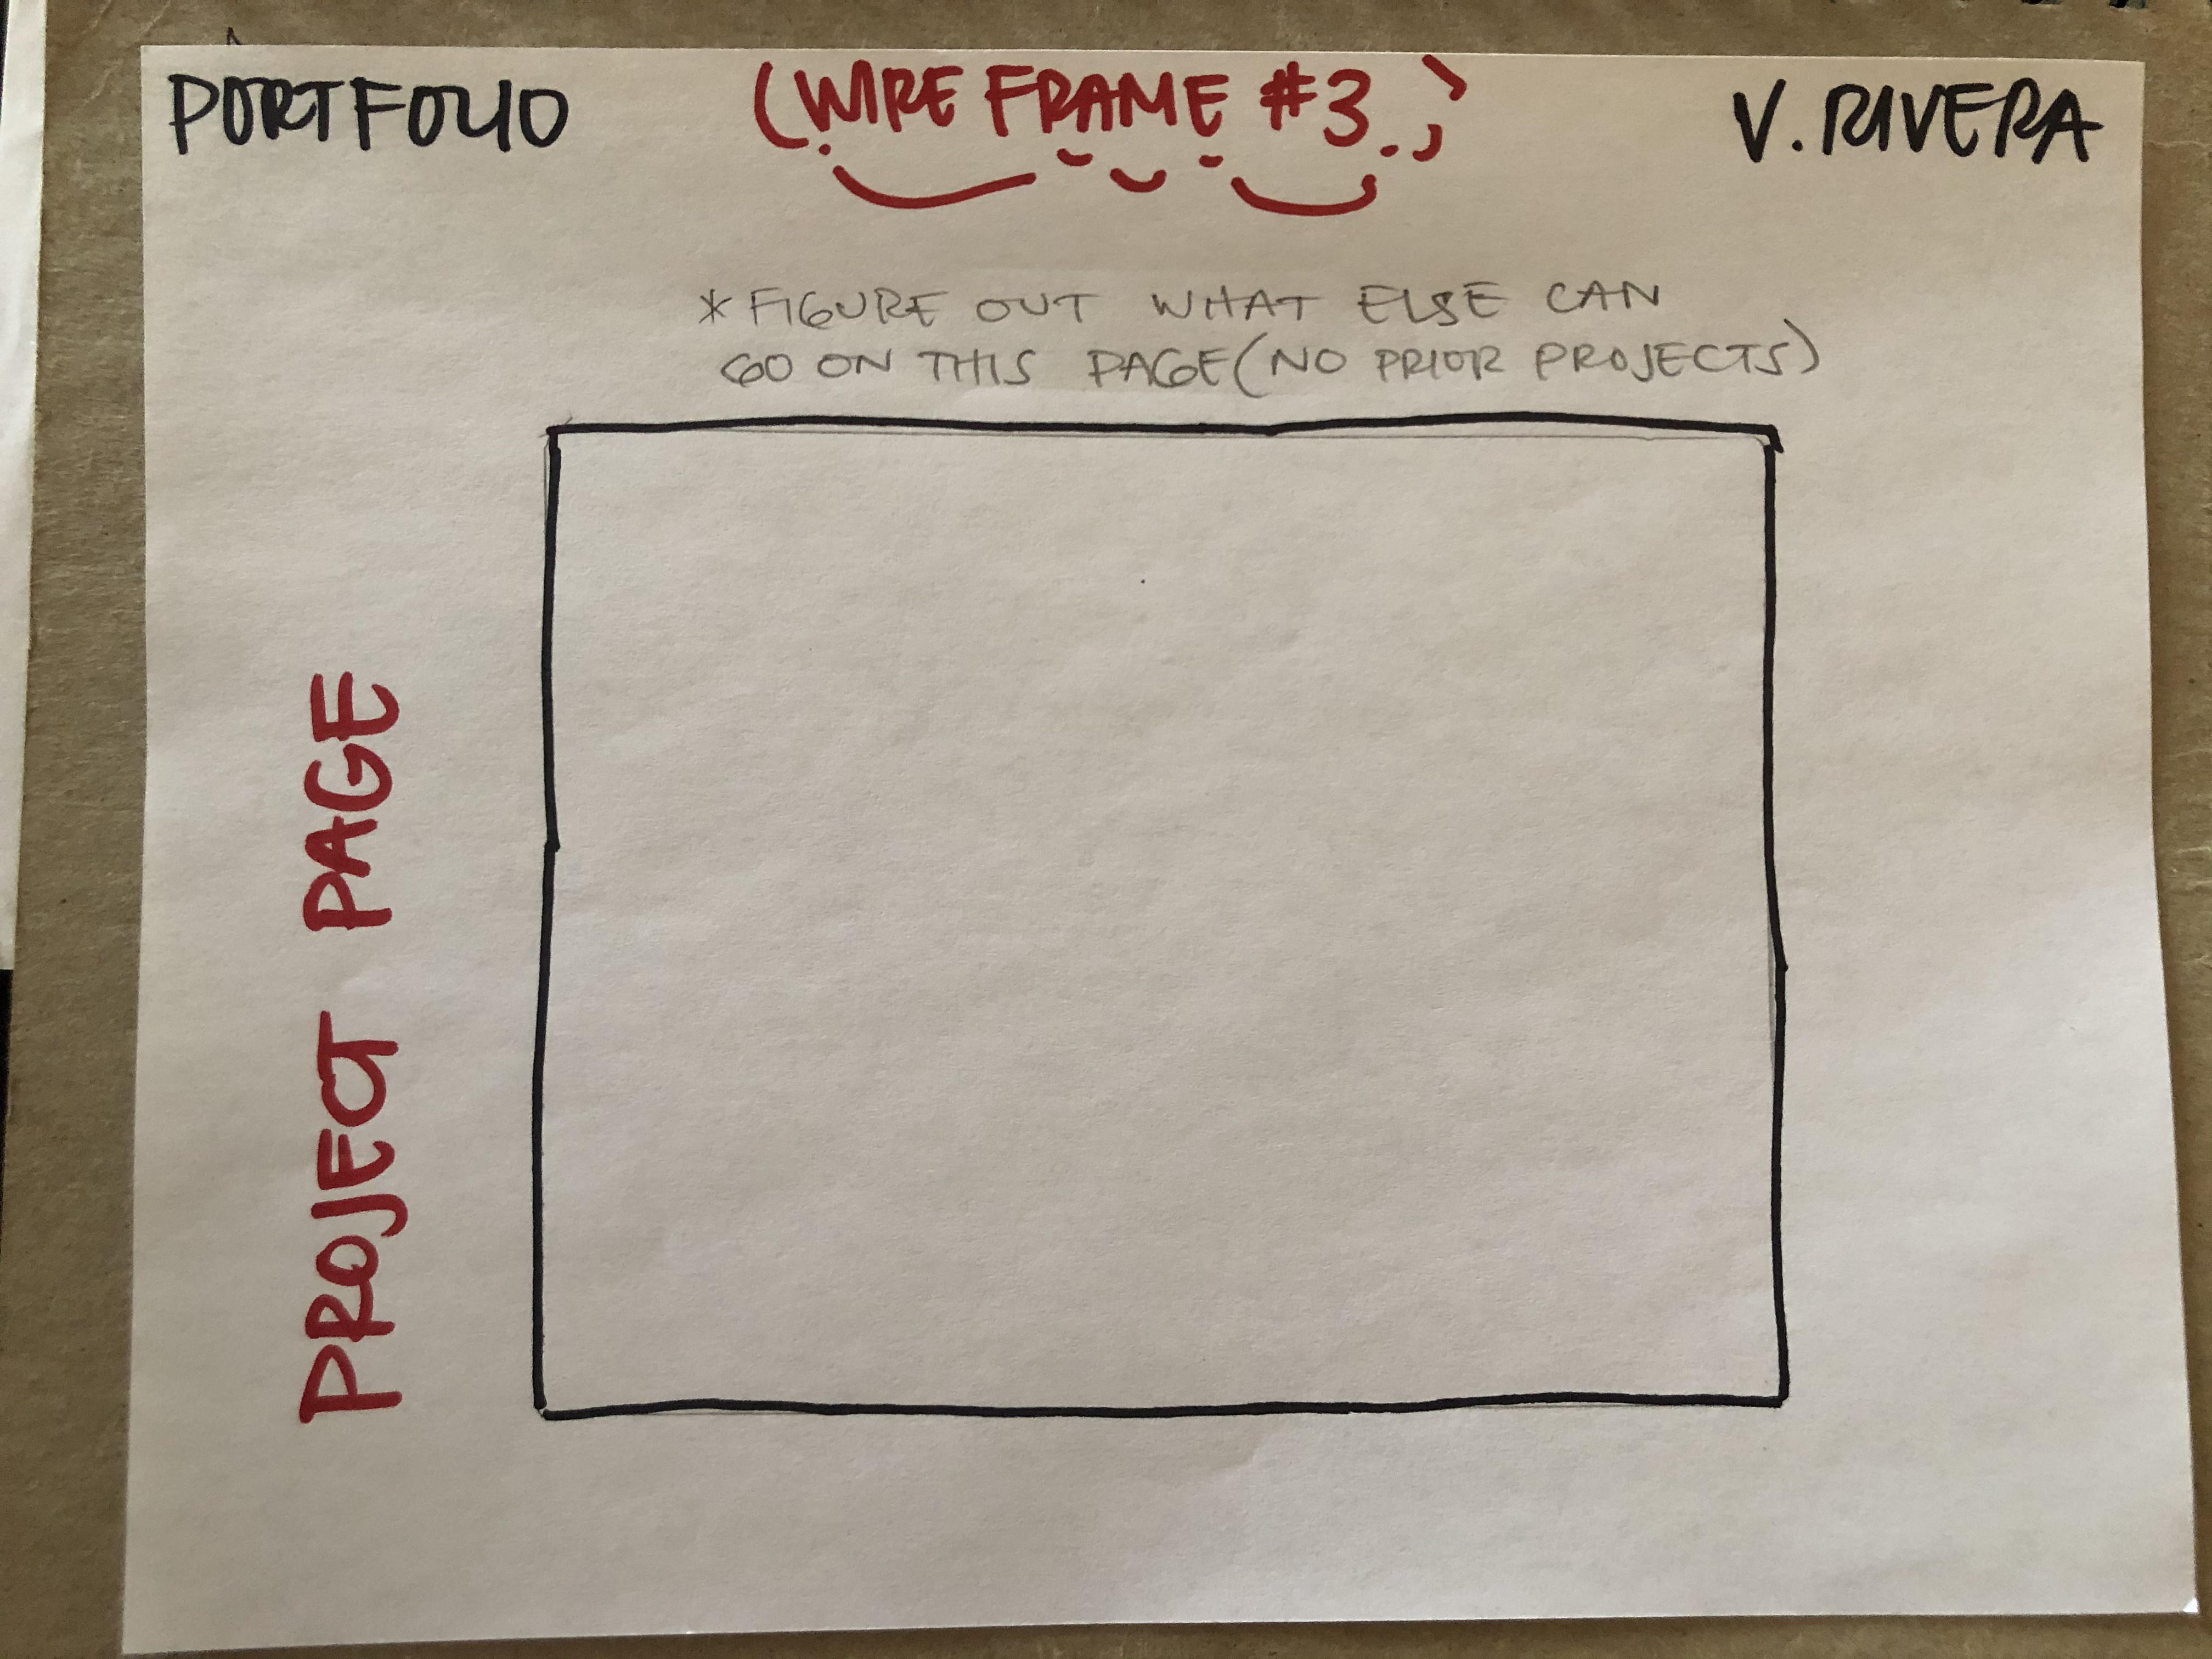 PORTFOLIO
(WIRE FRAME #3.)
V. RIVERA
* FIGURE OUT WHAT ELSE CAN
GO ON THIS PAGE (NO PRIOR PROJECTS)
PROJECT PAGE